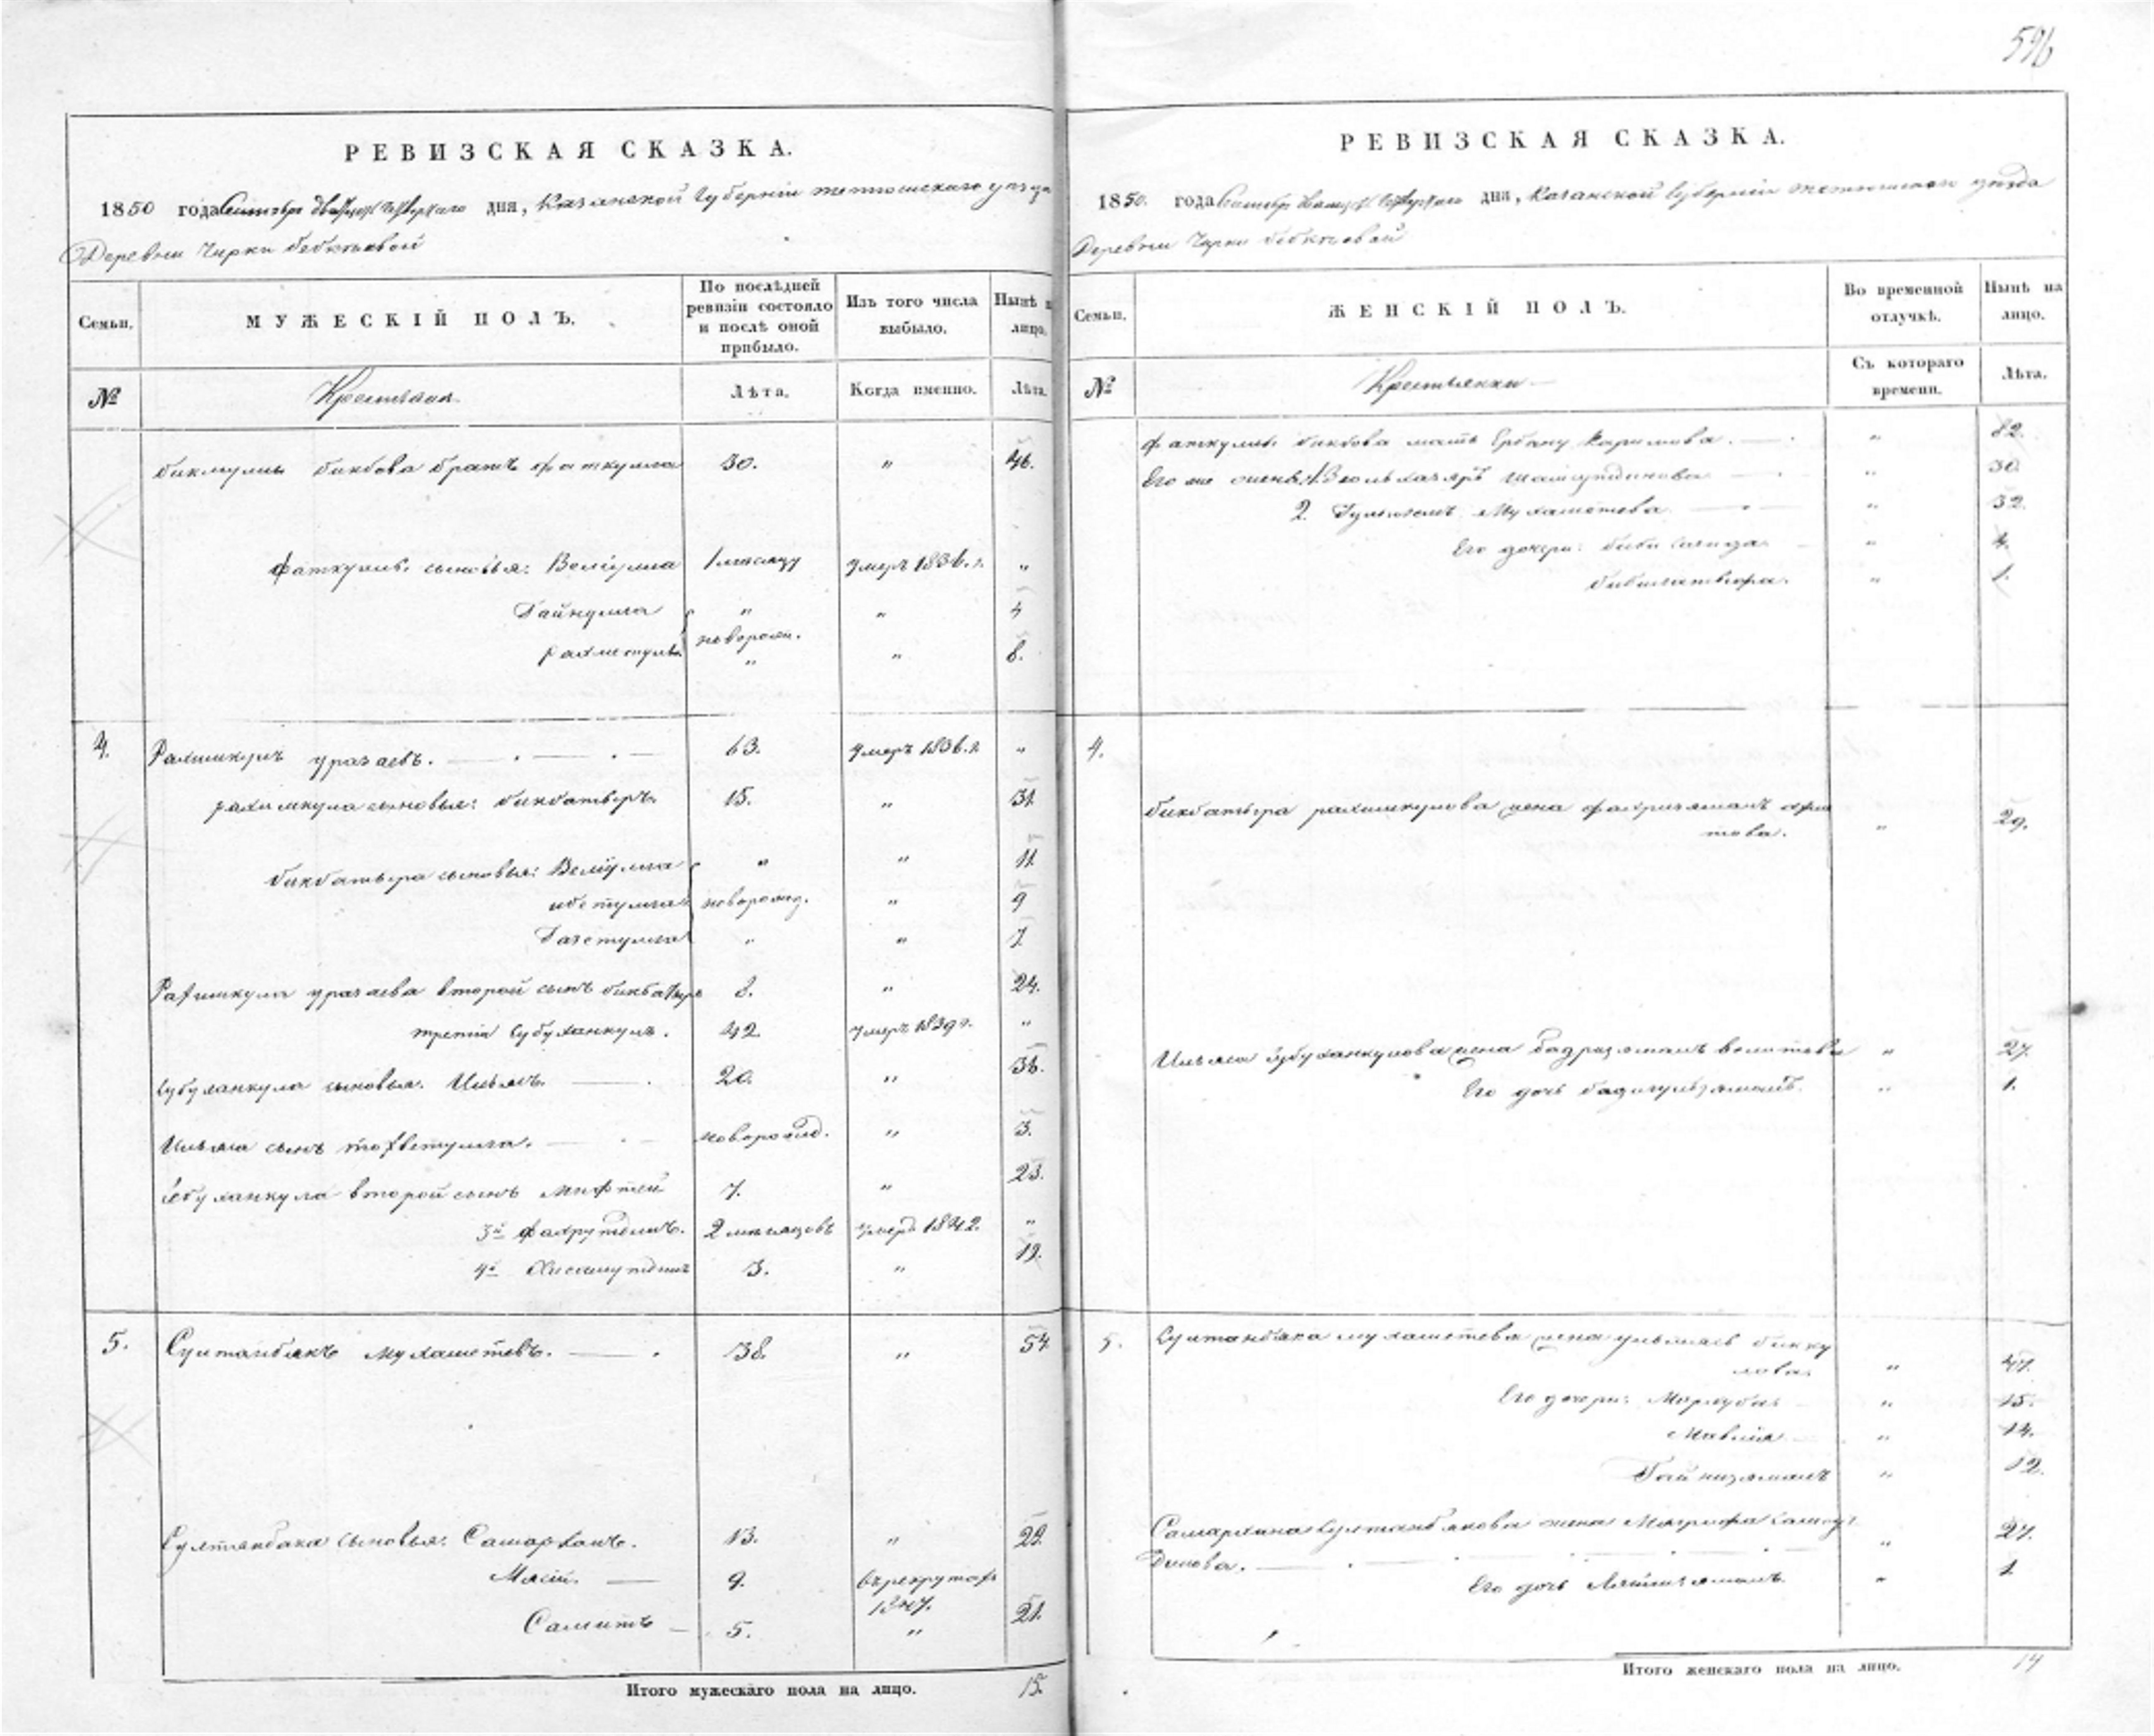 596
РЕВИЗСКАЯ СКАЗКА.
1850 года Сентября двадцать четвертаго дня, Казанской Губерніи тетюшскаго уезда
Деревни Чирки бебкеевой
Семьи.
МУЖЕСКІЙ ПОЛЪ.
По послѣдней ревизіи состояло и послѣ оной прибыло.
Изъ того числа выбыло.
Нынѣ лицо.
№
Крестьяне
Лѣта.
Когда именно.
Лѣта.
бикмуллы бикбова братъ фаткулла 30. " 46.
фаткуллы сыновья: Велiулла 1 месяцу умеръ 1836. г. "
Гайнулла " " 4
рахметулла новорож. " " 8.
4. Рахимкулъ уразаевъ. 63. умеръ 1836. г. "
рахимкула сыновья: бикбатыръ 15. " 31.
бикбатыра сыновья: Велiулла " " 11.
новорожд. " 9
" " 7
Рахимкула уразаева второй сынъ 8. " 24.
третiй Субуханкулъ. 42 умеръ 1839 г. "
Субуханкула сыновья. Ильясъ. 20. " 36.
Ильяса сынъ тохветулла. новорожд. " 3.
Субуханкула второй сынъ Мифтей 7. " 23.
3й Фахрутдинъ. 2 месяцовъ умеръ 1842. "
4й Хисамутдинъ 3. " 19.
5. Султанбякъ мухаметевъ. 38. " 54.
Султанбяка сыновья: Самарханъ. 13. " 29.
Мясiй. 9. въ рекрутах 1847.
Самитъ 5. " 21.
Итого мужескаго пола на лицо. 15.
РЕВИЗСКАЯ СКАЗКА.
1850. года Сентября двадцать четвертаго дня, Казанской Губерніи тетюшскаго уезда
Деревни Чирки бебкеевой
Семьи.
ЖЕНСКІЙ ПОЛЪ.
Во временной отлучкѣ.
Нынѣ на лицо.
№
Крестьянки
Съ котораго времени.
Лѣта.
фаткуллы бикбова мать Каримова. " 82.
Его же жены 1. " 30.
2. Мухаметева " 32.
Его дочери: биби " 4.
" 1.
4.
бикбатыра рахимкулова жена фахризяманъ
това. " 29.
Ильяса Субуханкулова жена бадризяманъ " 27.
Его дочь " 1.
5. Султанбяка мухаметева жена бикку
лова. " 47.
Его дочери: " 15.
Мавлия " 14.
Гайнизямалъ " 12.
Самархана Султанбякова жена
динова. " 27.
Его дочь " 1.
Итого женскаго пола на лицо. 14